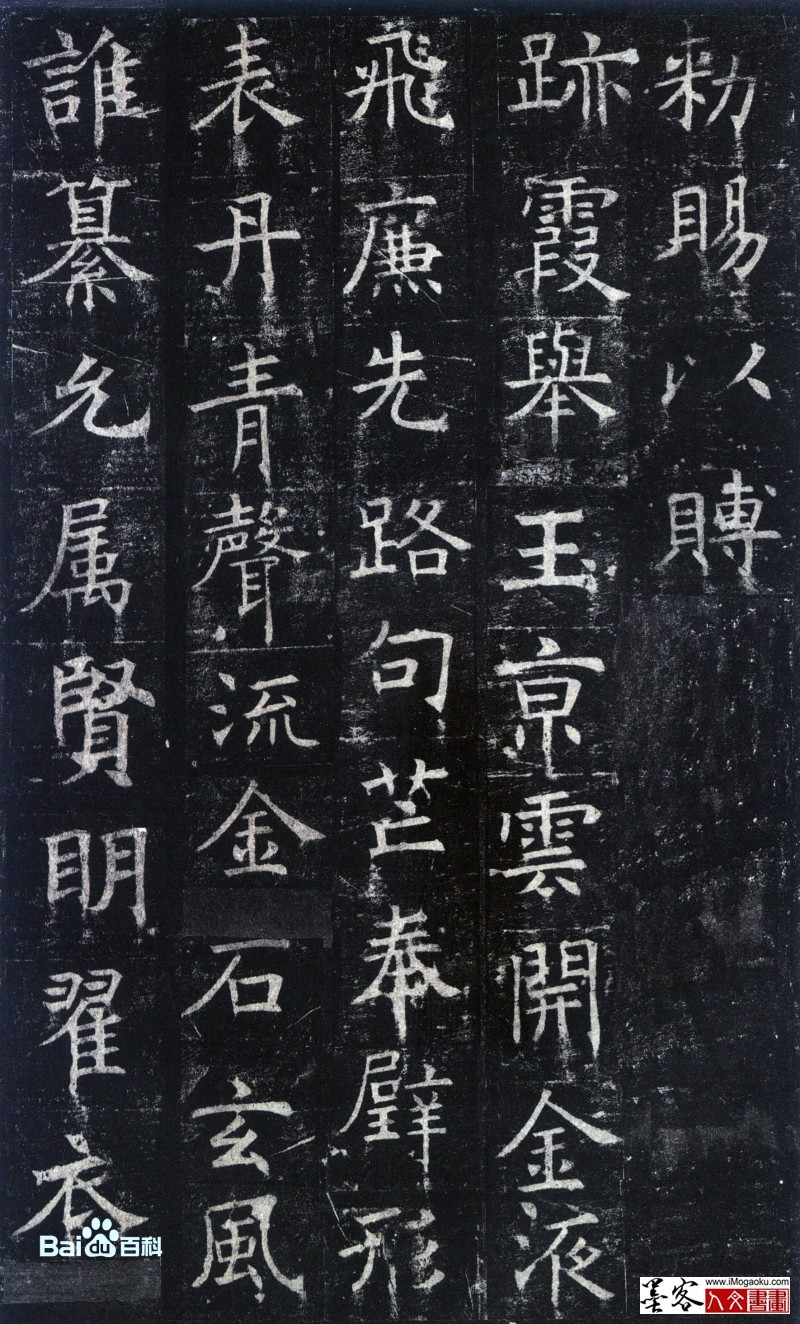 勑賜以賻
跡霞舉玉亰雲開金液
飛廉先路句芒奉辟形
表丹青聲流金石玄風
誰纂允属賢明翟衣
Bai du 百科
墨客
www.iMogaoku.com
人文書畫